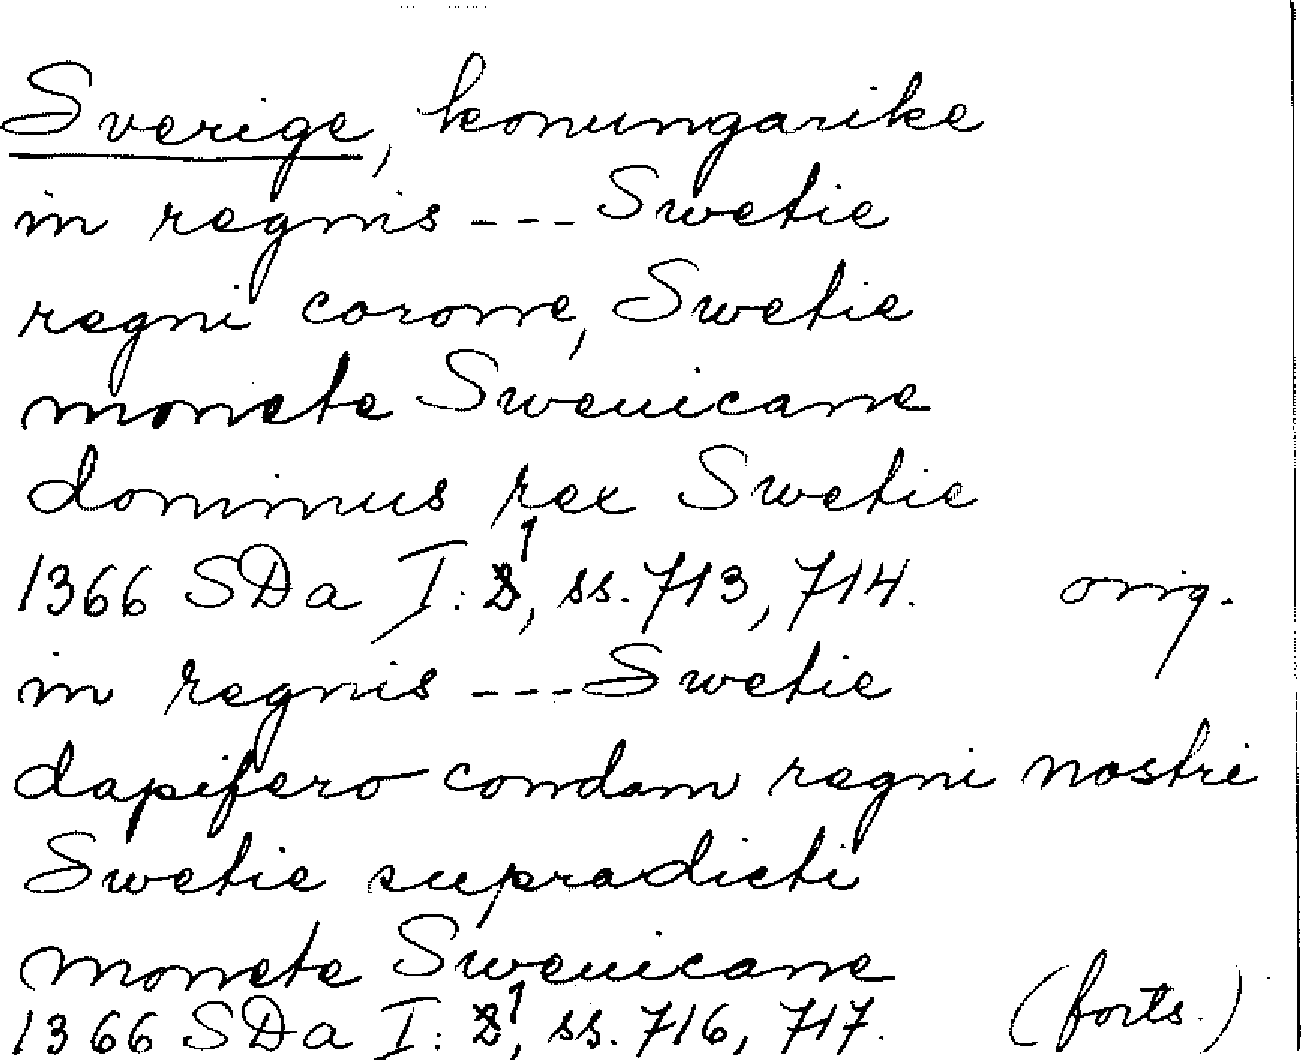 Sverige, konungarike
in regnis --- Swetie
regni corone, Swetie
monete Sweuicane
dominus rex Swetie
1366 SDa I: 1, ss. 713, 714. orig.
in regnis --- Swetie
dapifero condam regni nostri
Swetie supradicti
monete Sweuicane
1366 SDa I: 1, ss. 716, 717. (forts.)